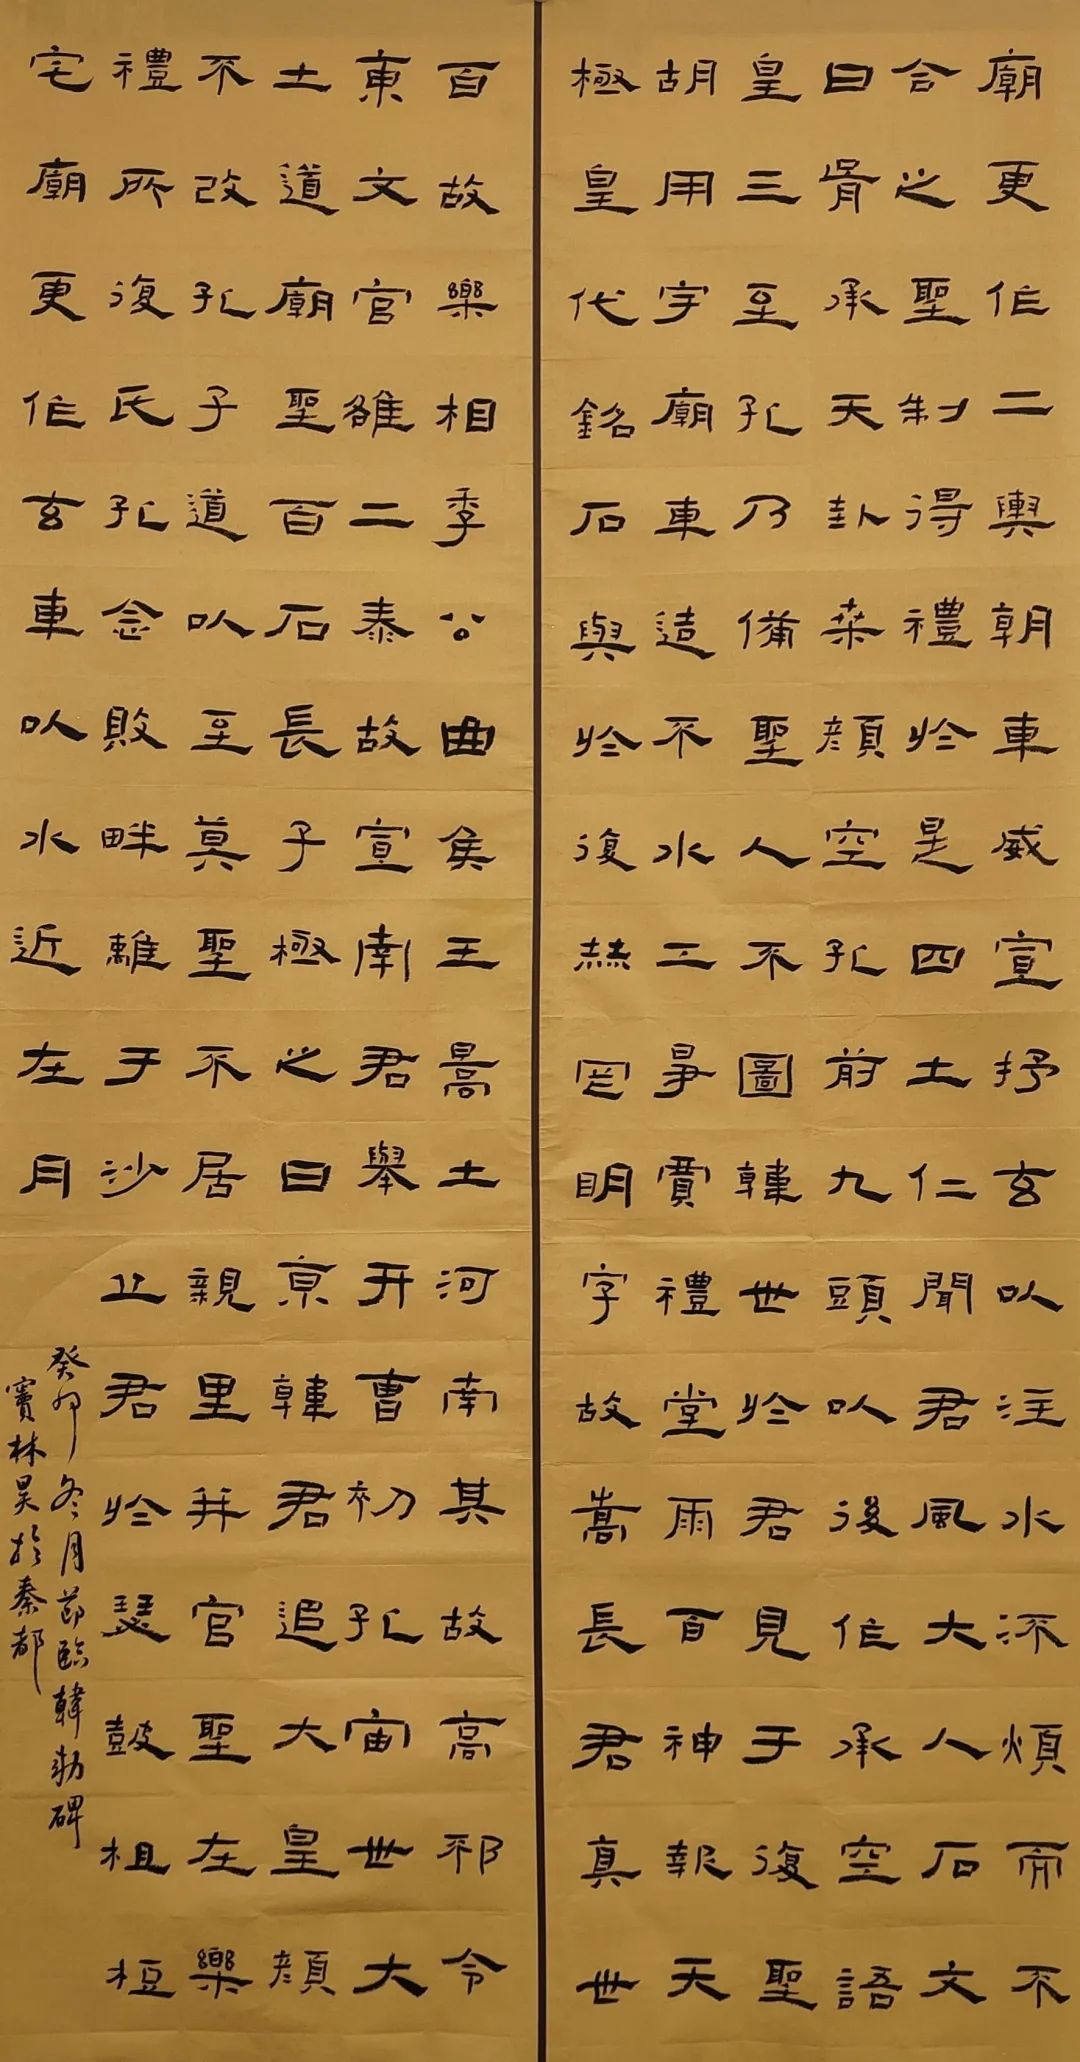 廟更作二輿朝車威宣抒玄以注水流煩而不
合之聖制得禮於是四土仁聞君風大人石文
曰胥承天卦桒顏空孔前九頭以後作承空語
皇三至孔乃備聖人不圖韓世於君見于復聖
胡用宇廟車造不水工爭賈禮堂雨百神報天
極皇代銘石與於復赫罔眀字故嵩長君真世
百故樂相季公曲侯王暠土河南其故高邪令
東文官雒二泰故宣南君舉开曹初孔宙世大
土道廟聖百石長子極之曰京韓君追大皇顏
不改孔子道以至莫聖不居親里并官聖在樂
禮所復氏孔念敗畔離于沙丘君於瑟鼓柤梪
宅廟更作玄車以水近在月
癸卯冬月節臨韓勑碑
竇林昊於秦都